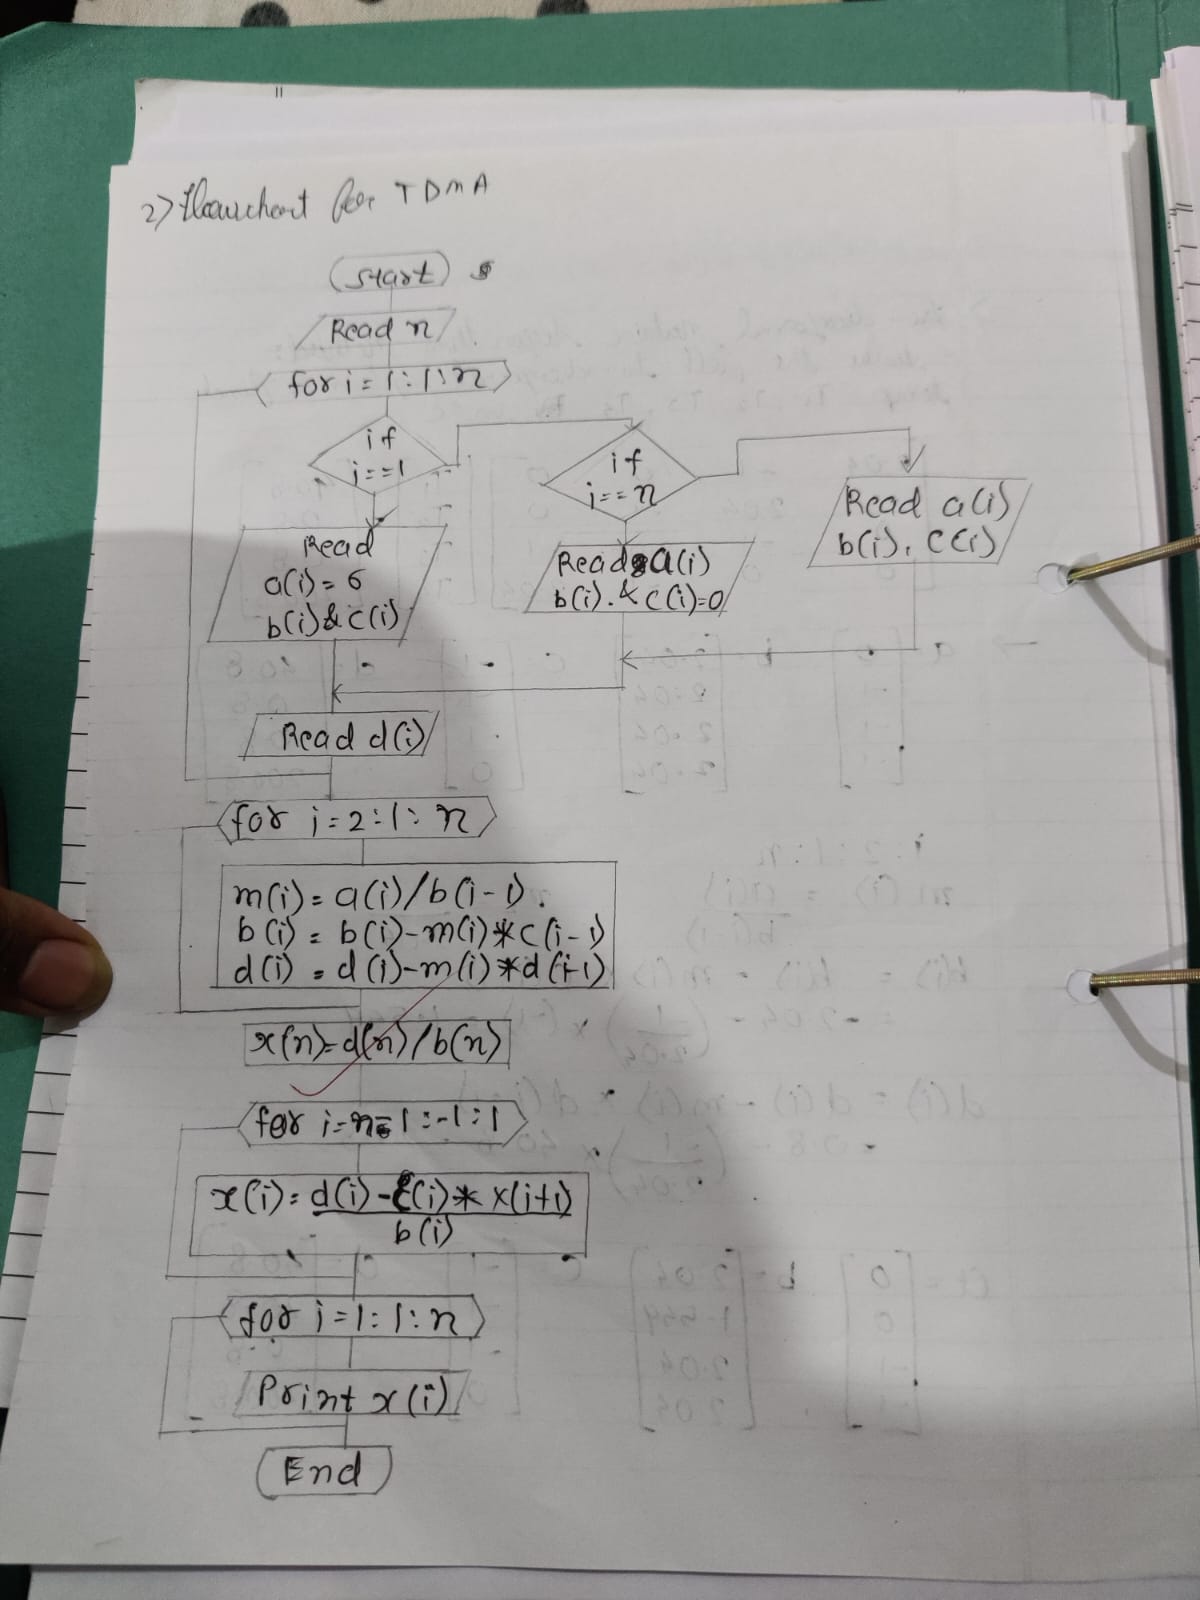 2) Flowchart for TDMA
Start
Read n
for i = 1:1:n
if
i==1
if
i==n
Read a(i)
b(i), c(i)
Read
a(i) = 6
b(i) & c(i)
Read a(i)
b(i). & c(i)=0
Read d(i)
for i = 2:1:n
m(i) = a(i)/b(i-1).
b(i) = b(i)-m(i)*c(i-1)
d(i) = d(i)-m(i)*d(i-1)
x(n)=d(n)/b(n)
for i=n-1:-1:1
x(i) = d(i)-c(i)* x(i+1)
b(i)
for i=1:1:n
Print x(i)
End